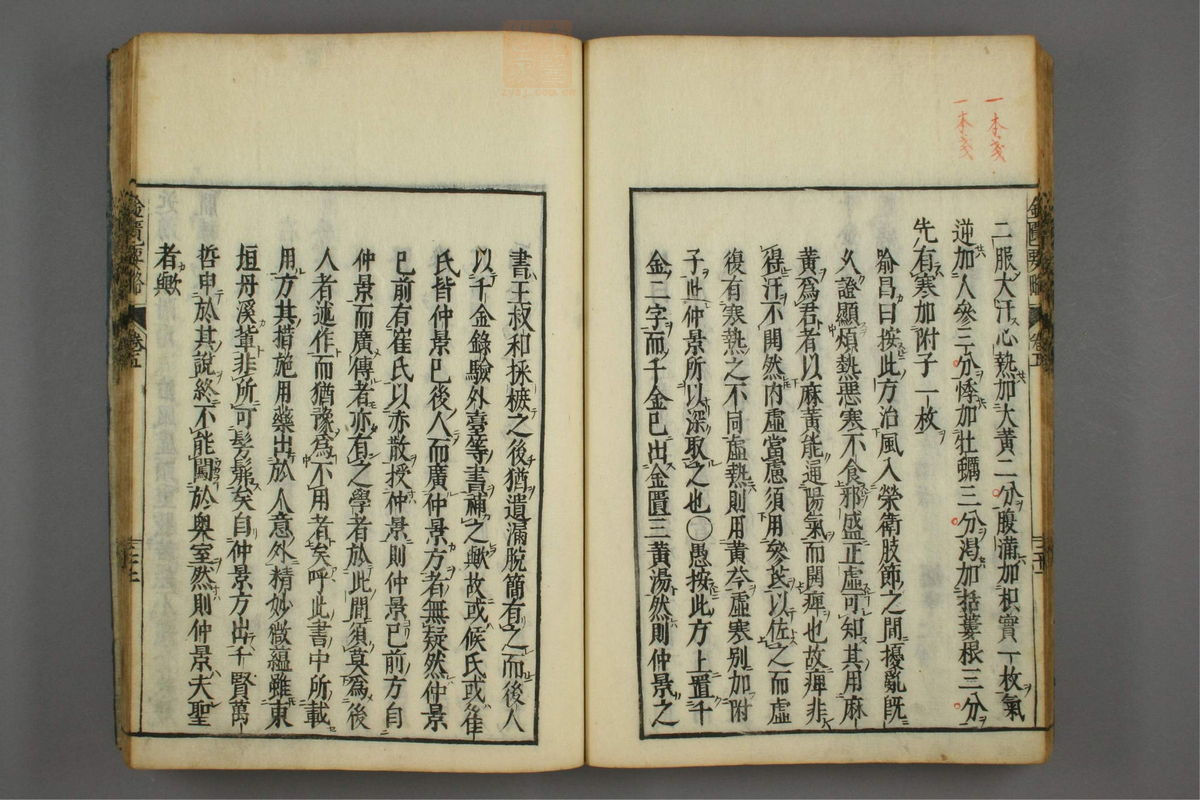 一本戔
一本戔
二服大汗心熱加大黃二分腹滿加枳實一枚氣
逆加人參三分悸加牡蠣三分渴加括蔞根三分
先有寒加附子一枚
喻昌曰按此方治風入榮衛肢節之間擾亂既
久證顯煩熱惡寒不食邪盛正虛可知其用麻
黃爲君者以麻黃能通陽氣而開痺也故痺非
得汗不開然內虛當慮須用參芪以佐之而虛
復有寒熱之不同虛熱則用黃芩虛寒別加附
子此仲景所以深取之也〇愚按此方上置千
金二字而千金已出金匱三黃湯然則仲景之
書王叔和採摭之後猶遺漏脫簡有之而後人
以千金錄驗外臺等書補之歟故或候氏或崔
氏皆仲景已後人而廣仲景方者無疑然仲景
已前有崔氏以亦散授仲景則仲景已前方自
仲景而廣傳者亦有之學者於此間須莫爲後
人者述作而猶豫爲不用者矣呼此書中所載
用方其措施用藥出於人意外精妙微蘊雖東
垣丹溪輩非所可髣髴矣自仲景方出千賢萬
哲申於其說終不能闖於奧室然則仲景夫聖
者歟
金匱要略
卷五
金匱要略